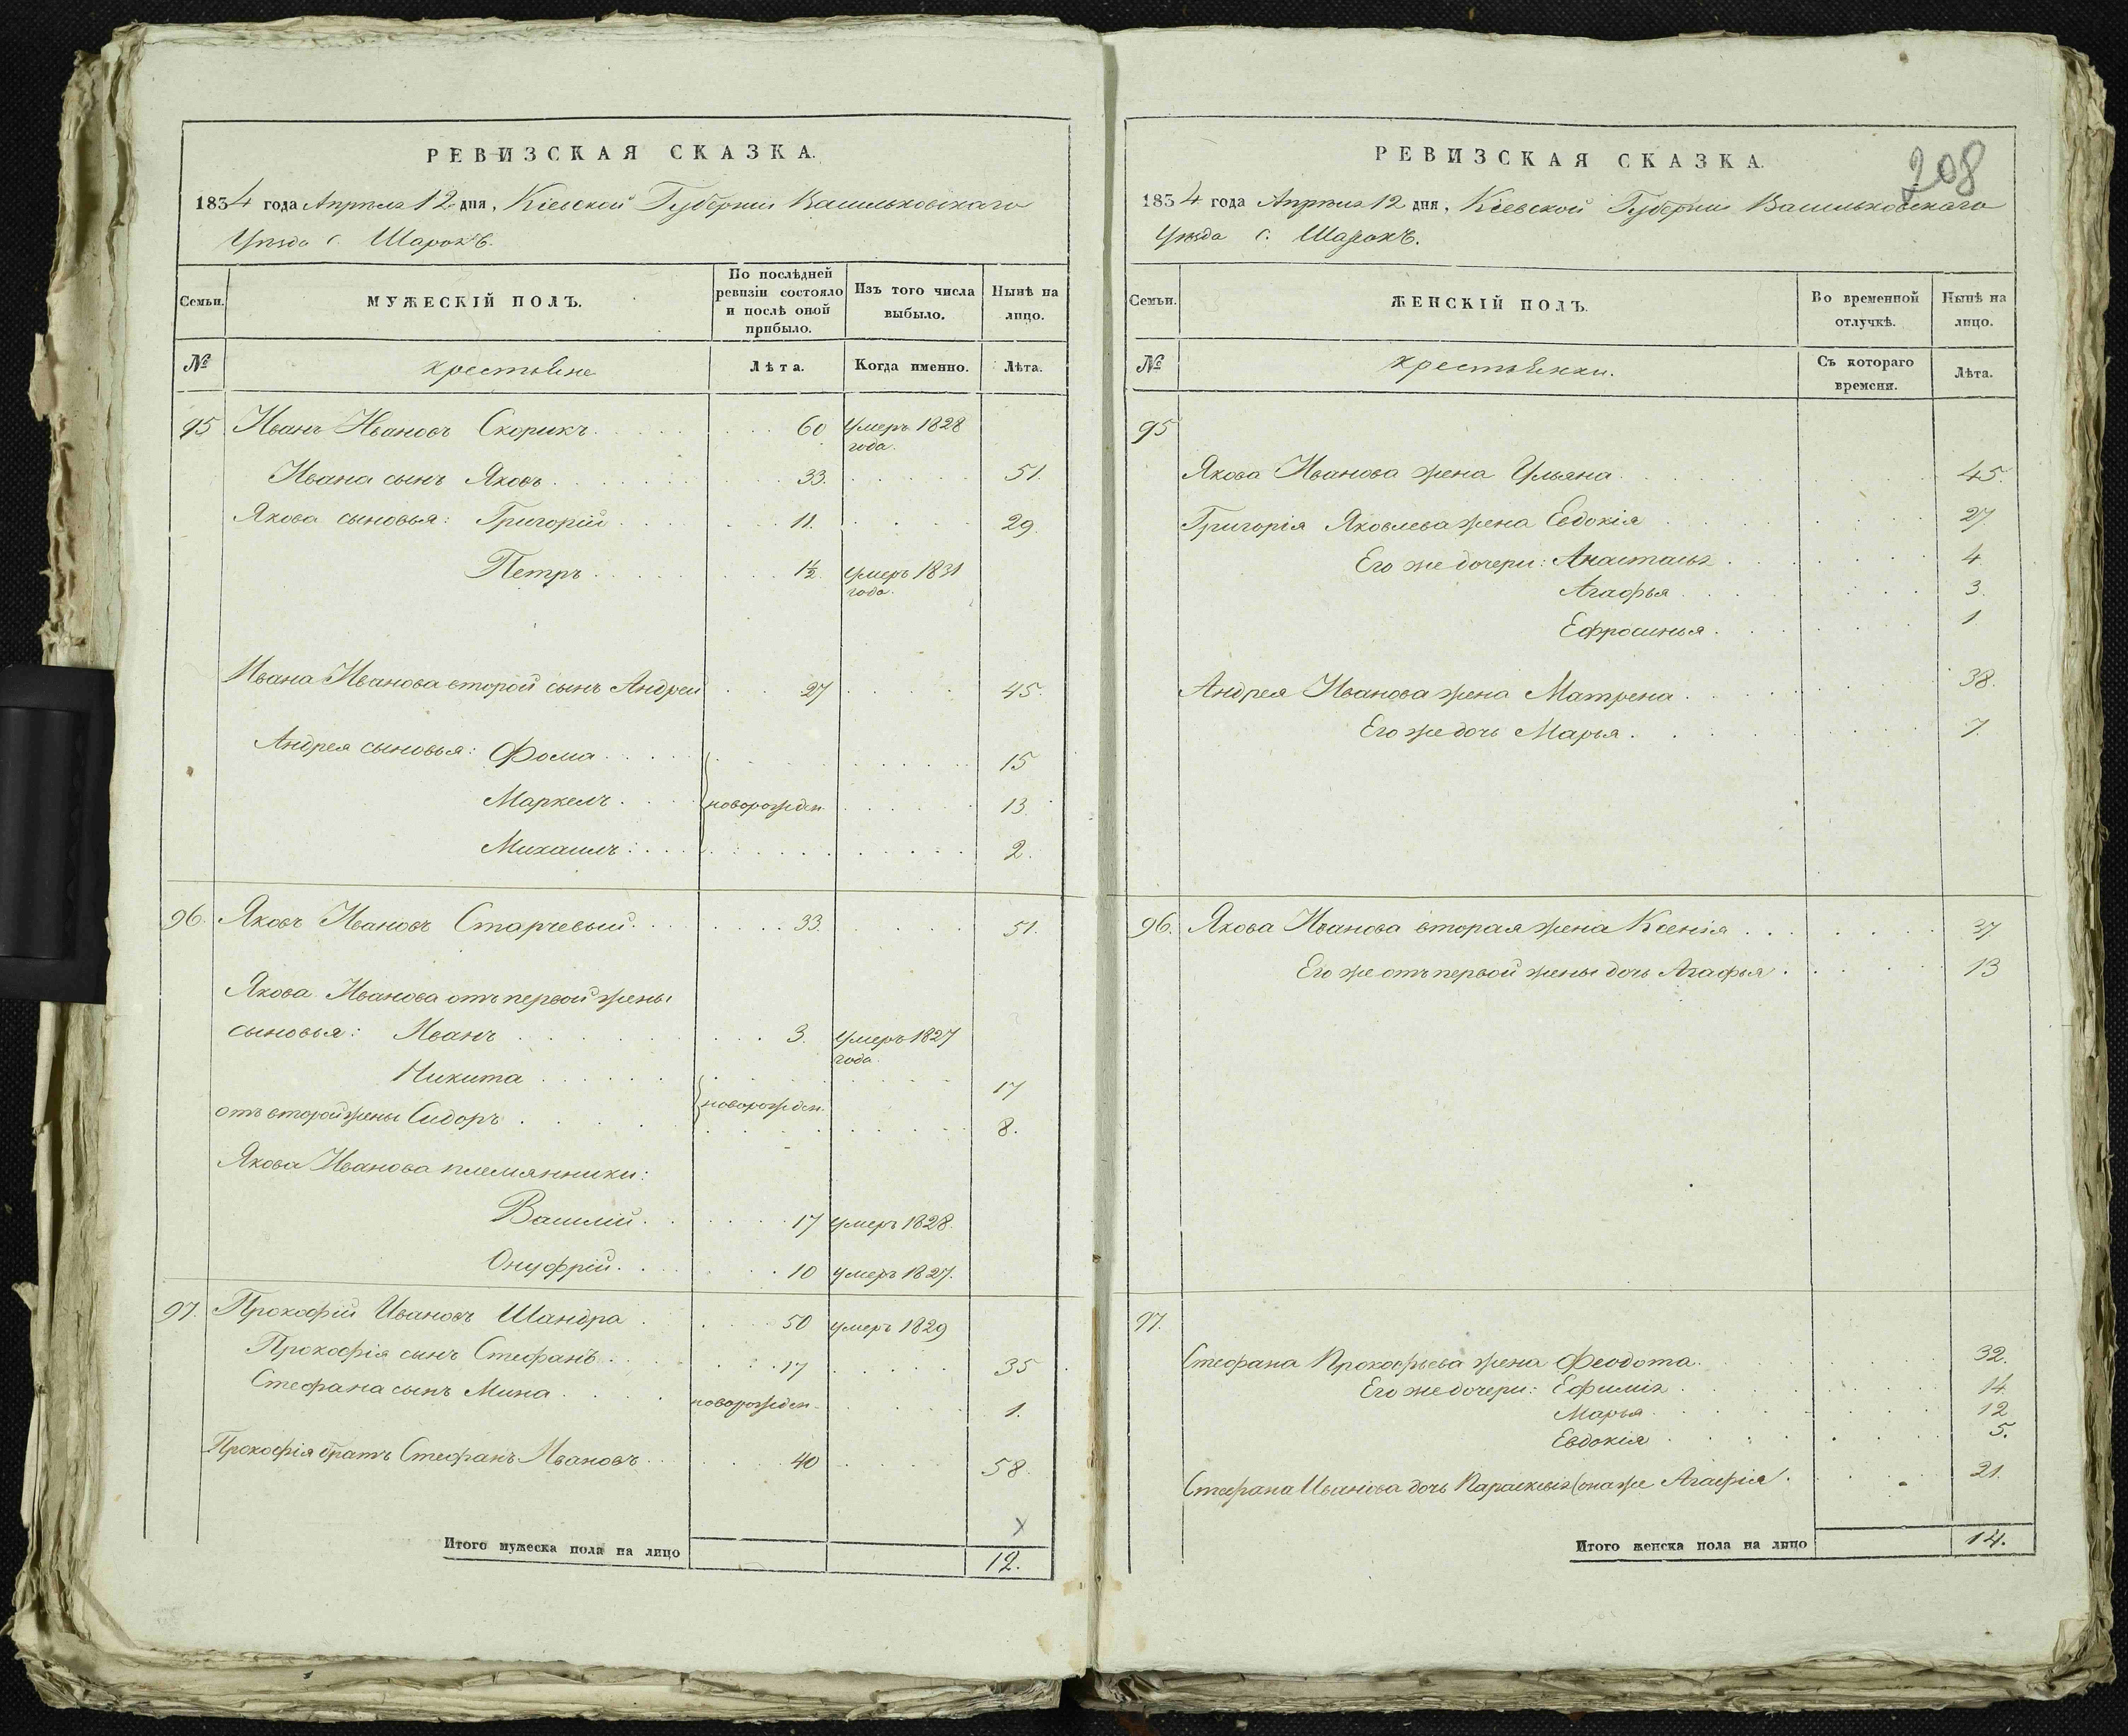 РЕВИЗСКАЯ СКАЗКА.
1834 года Апрѣля 12 дня, Кіевской Губерніи Васильковскаго
Уѣзда с. Шарокъ.
Семьи.
МУЖЕСКІЙ ПОЛЪ.
По послѣдней ревизіи состояло и послѣ оной прибыло.
Изъ того числа выбыло.
Нынѣ на лицо.
№
крестьяне
Лѣта.
Когда именно.
Лѣта.
95 Иванъ Ивановъ Скорикъ 60 умеръ 1828
года.
Ивана сынъ Яковъ 33. 51.
Якова сыновья: Григорій 11. 29.
Петръ 1½ умеръ 1831
года.
Ивана Иванова второй сынъ Андрей 27 45.
Андрея сыновья: Фома 15
Маркелъ новорожден. 13.
Михаилъ 2.
96. Яковъ Ивановъ Старчевый 33. 51.
Якова Иванова отъ первой жены
сыновья: Иванъ 3. умеръ 1827
года.
Никита 17
новорожден.
отъ второй жены Сидоръ 8.
Якова Иванова племянники:
Василій 17 умеръ 1828.
Онуфрій 10 умеръ 1827.
97. Прокофій Ивановъ Шандра 50 умеръ 1829
Прокофія сынъ Стефанъ 17 35
Стефана сынъ Мина новорожден. 1.
Прокофія братъ Стефанъ Ивановъ 40 58.
х
Итого мужеска пола на лицо 12.
208
РЕВИЗСКАЯ СКАЗКА.
1834 года Апрѣля 12 дня, Кіевской Губерніи Васильковскаго
Уѣзда с. Шарокъ.
Семьи.
ЖЕНСКІЙ ПОЛЪ.
Во временной отлучкѣ.
Нынѣ на лицо.
№
крестьянки.
Съ котораго времени.
Лѣта.
95
Якова Иванова жена Ульяна 45.
Григорія Яковлева жена Евдокія 27
Его же дочери: Анастасія 4
Агафья 3.
Ефросинья 1
Андрея Иванова жена Матрена 38.
Его же дочь Марья 7
96. Якова Иванова вторая жена Ксенія 37
Его же отъ первой жены дочь Агафья 13
97.
Стефана Прокофьева жена Феодота 32.
Его же дочери: Ефимія 14
Марья 12
Евдокія 5.
Стефана Иванова дочь Параскевія (она же Агафія) 21.
Итого женска пола на лицо 14.